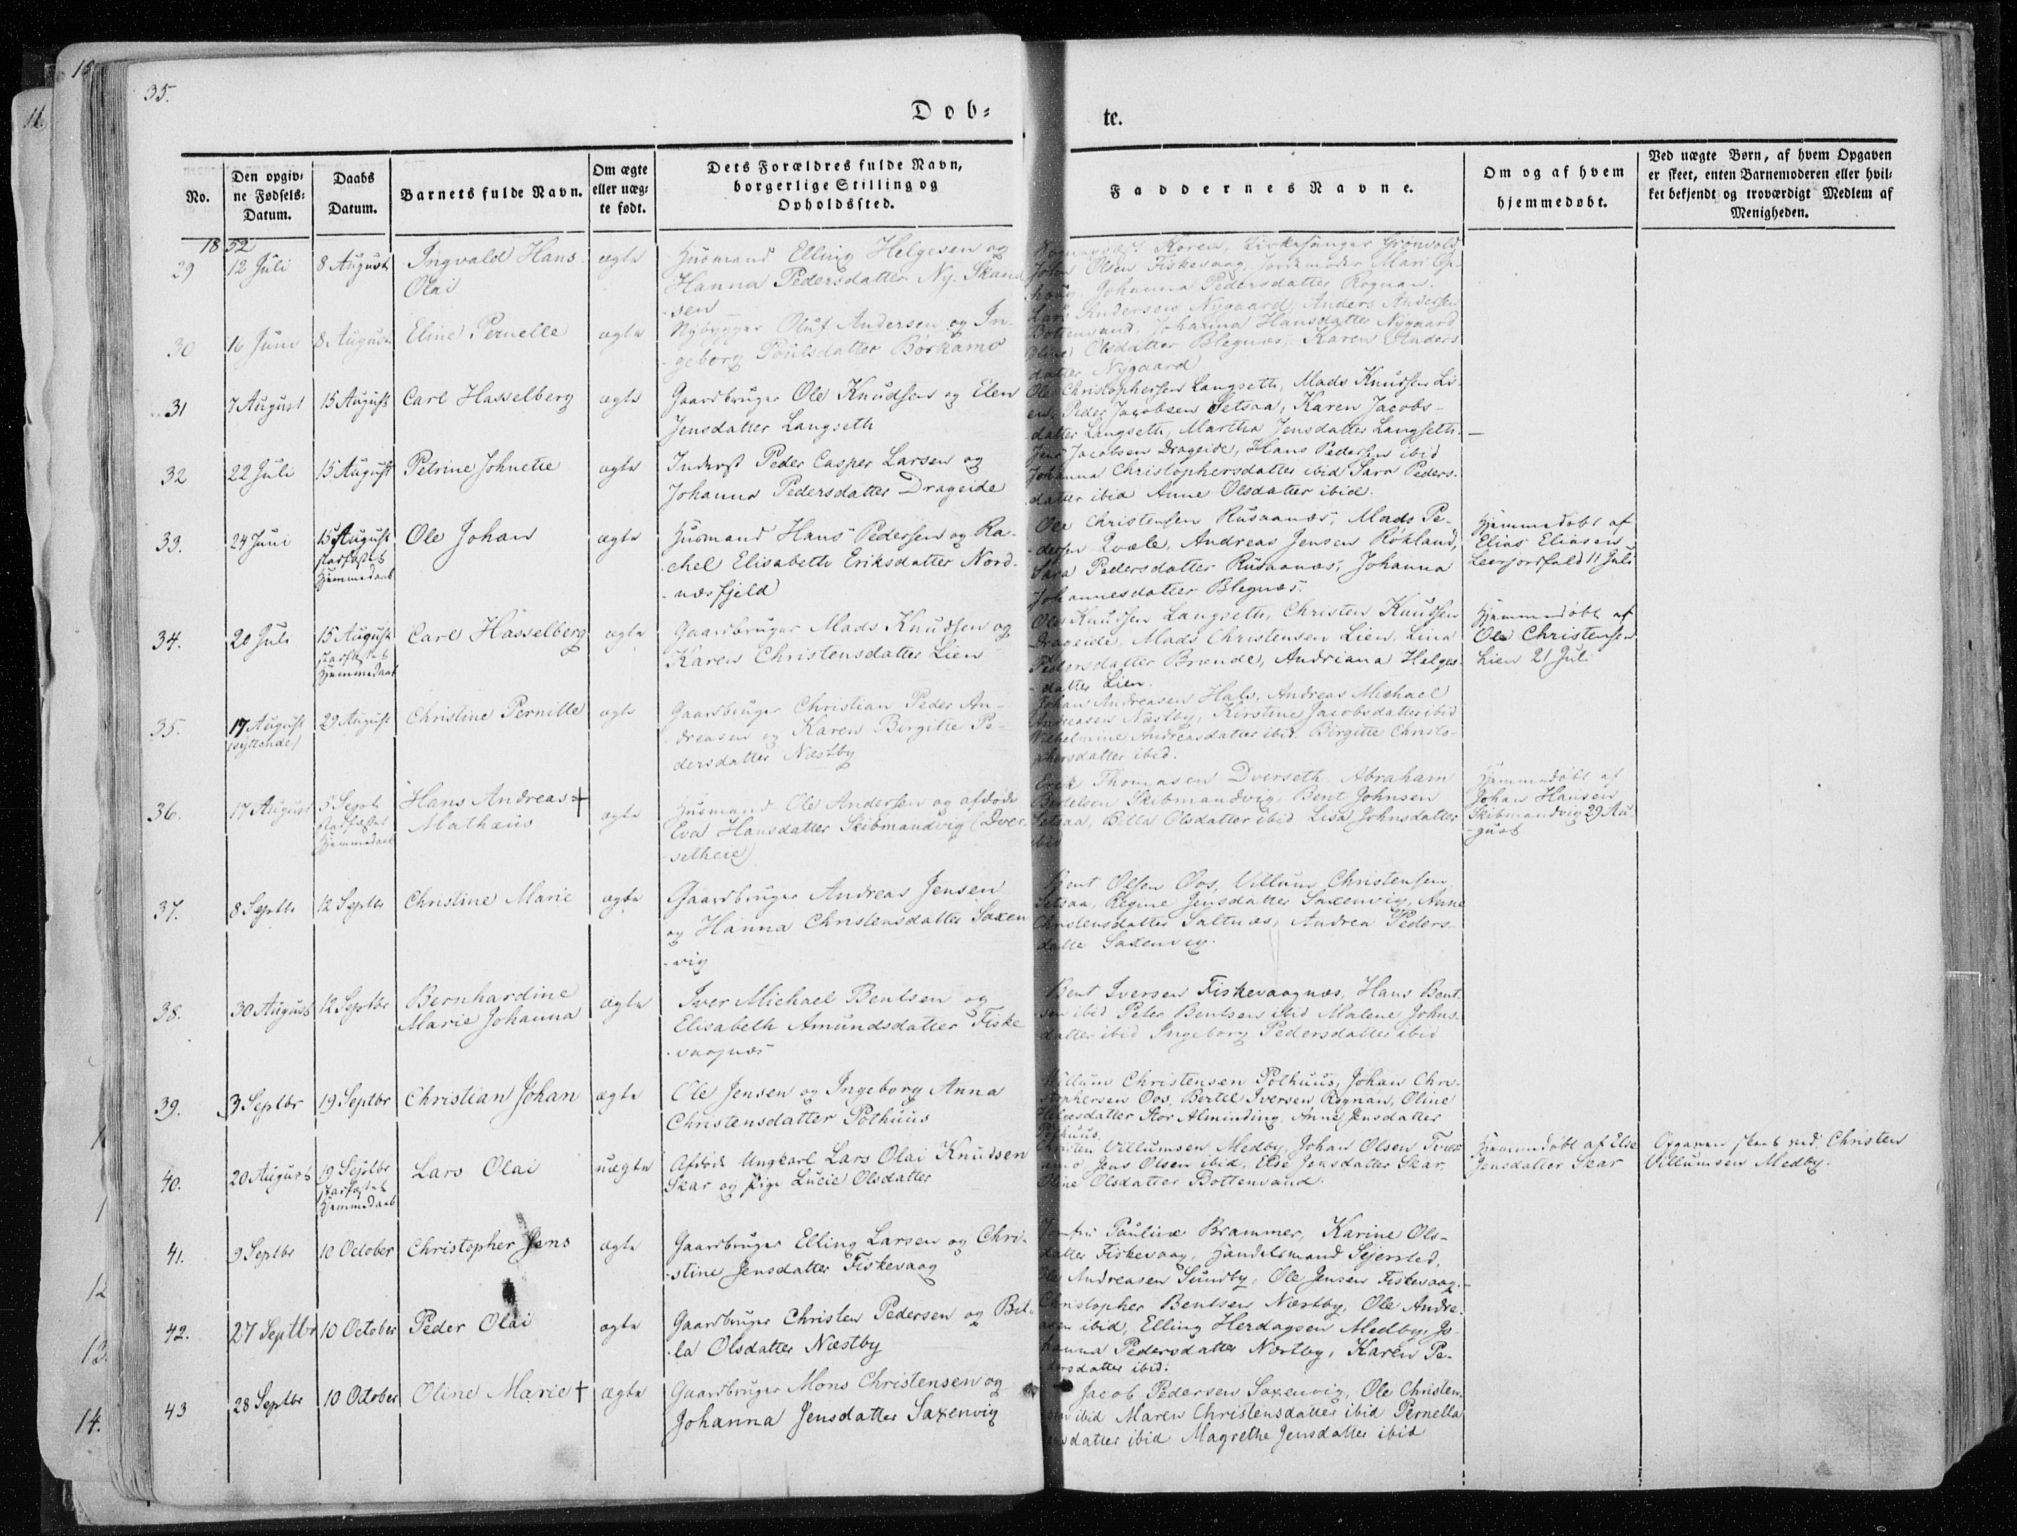 35.
Dob- te.
No.
Den opgiv-
ne Fødsels-
Datum.
Daabs
Datum.
Barnets fulde Navn.
Om ægte
eller uæg-
te født.
Dets Forældres fulde Navn,
borgerlige Stilling og
Opholdssted.
Faddernes Navne.
Om og af hvem
hjemmedøbt.
Ved uægte Børn, af hvem Opgaven
er skeet, enten Barnemoderen eller hvil-
ket bekjendt og troværdigt Medlem af
Menigheden.
1852
29
12 Juli
8 August
Ingvald Hans
Olai
ægte
Huusmand Elling Helgesen og
Hanna Pedersdatter Ny. Skand
sen
Koren, Kirkesanger Grønvold
Olsen Fiskevaag, Jordemoder Mari
Johanna Pedersdatter Rognan.
30
16 Juni
8 August
Eline Pernelle
ægte
Nybygger Oluf Andersen og In-
geborg Poulsdatter Borkamo
Lars Andersen Nygaard, Anders Andersen
Bottenvand, Johanna Hansdatter Nygaard
Olsdatter Blegnæs, Karen Anders
datter Nygaard
31
7 August
15 August
Carl Hasselberg
ægte
Gaardbruger Ole Knudsen og Elen
Jensdatter Langseth
Ole Christophersen Langseth, Mads Knudsen Li-
en, Peder Jacobsen Setsaa, Karen Jacobs-
datter Langseth, Martha Jensdatter Langseth
32
22 Juli
15 August
Petrine Johnette
ægte
Inderst Peder Casper Larsen og
Johanna Pedersdatter Drageide
Jens Jacobsen Drageide, Hans Pedersen ibid
Johanna Christophersdatter ibid Sara Peders-
datter ibid Anne Olsdatter ibid.
33.
24 Juni
15 August
stadfæstet
Hjemmedaab
Ole Johan
ægte
Huusmand Hans Pedersen og Ra-
chel Elisabeth Eriksdatter Nord-
næsfjeld
Ole Christensen Rusaanæs, Mads Pe-
dersen Qvæle, Andreas Jensen Røkland,
Sara Pedersdatter Rusaanæs, Johanna
Johannesdatter Blegnæs.
Hjemmedøbt af
Elias Eliasen
Leerjordfald 11 Juli
34.
20 Juli
15 August
stadfæstet
Hjemmedaab
Carl Hasselberg
ægte
Gaardbruger Mads Knudsen og
Karen Christensdatter Lien
Ole Knudsen Langseth, Christen Knudsen
Drageide, Mads Christensen Lien, Lina
Pedersdatter Brænde, Andriana Helges-
datter Lien.
Hjemmedøbt af
Ole Christensen
Lien 21 Juli
35.
17 August
(syttende)
29 August
Christine Pernille
ægte
Gaardbruger Christian Peder An-
dreasen og Karen Birgitte Pe-
dersdatter Næstby
Johan Andreasen Hals, Andreas Michael
Andreasen Næstby, Kirstine Jacobsdatter ibid
Wilhelmine Andreasdatter ibid. Birgitte Christo-
phersdatter ibid.
36.
17 August
5 Sept
stadfæstet
Hjemmedaab
Hans Andreas +
Mathæus
ægte
Huusmand Ole Andersen og afdøde
Eva Hansdatter Skibmandvig (Dver-
setheie)
Erek Thomasen Dverseth, Abraham
Bertelsen Skibmandvig, Bent Johnsen
Setsaa, Billa Olsdatter ibid Lisa Johnsdatter
ibid
Hjemmedøbt af
Johan Hansen
Skibmandvig 29 Au-
gust
37.
8 Septbr
12 Septbr
Christine Marie
ægte
Gaardbruger Andreas Jensen
og Hanna Christensdatter Saxen
vig
Bent Olsen Oos, Villum Christensen
Setsaa, Regine Jensdatter Saxenvig, Anne
Christensdatter Saltnæs, Andrea Peders-
datter Saxenvig.
38.
30 August
12 Septbr
Bernhardine
Marie Johanna
ægte
Iver Michael Bentsen og
Elisabeth Amundsdatter Fiske
vaagnæs
Bent Iversen Fiskevaagnæs, Hans Bent-
sen ibid Peter Bentsen ibid Malene Johns-
datter ibid Ingeborg Pedersdatter ibid
39.
3 Septbr
19 Septbr
Christian Johan
ægte
Ole Jensen og Ingeborg Anna
Christensdatter Pothuus
Villum Christensen Pothuus, Johan Chri-
stophersen Oos, Bertel Iversen Rognan, Oline
Helgesdatter Stor Alminding, Anne Jensdatter
Pothuus.
40.
20 August
19 Septbr
stadfæstet
Hjemmedaab
Lars Olai
uægte
Afdøde Ungkarl Lars Olai Knudsen
Skar og Pige Lucie Olsdatter
Christen Villumsen Medby, Johan Olsen
Jens Olsen ibid, Else Jensdatter Skar.
Oline Olsdatter Bottenvand.
Hjemmedøbt af Else
Jensdatter Skar
Opgaven skeet ved Christen
Villumsen Medby.
41.
9 Septbr
10 October
Christopher Jens
ægte
Gaardbruger Elling Larsen og Chri-
stine Jensdatter Fiskevaag
Jomfru Pauline Brammer, Karine Ols-
datter Fiskevaag, Handelsmand Sejersted,
Ole Andreasen Sundby, Ole Jensen Fiskevaag.
42.
27 Septbr
10 October
Peder Olai
ægte
Gaardbruger Christen Pedersen og Bil-
la Olsdatter Næstby
Christopher Bentsen Næstby, Ole Andre-
asen ibid, Elling Herdagsen Medby, Jo-
hanna Pedersdatter Næstby, Karen Pe-
dersdatter ibid.
43
28 Septbr
10 October
Oline Marie +
ægte
Gaardbruger Mons Christensen og
Johanna Jensdatter Saxenvig
Jacob Pedersen Saxenvig, Ole Christen-
sen ibid Maren Christensdatter ibid Pernella
datter ibid Magrethe Jensdatter ibid
11.
12
13.
14.